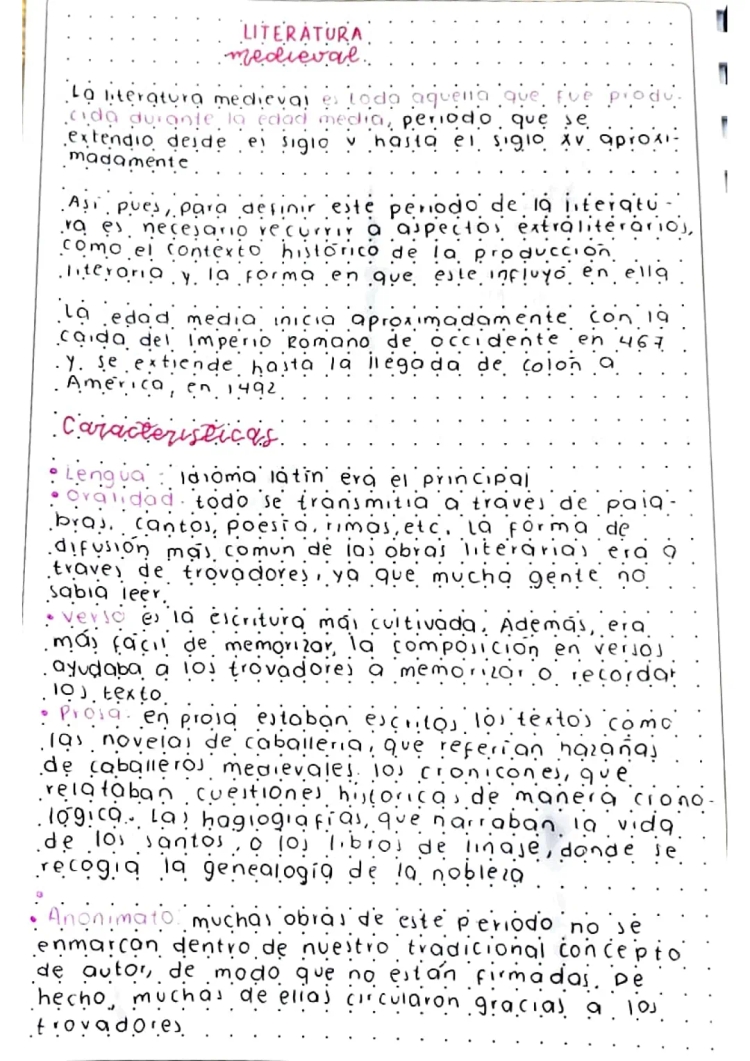 LITERATURA
medieval
La literatura medieval es toda aquella que fue produ-
cida durante la edad media, periodo que se
extendio desde el siglo v hasta el siglo xv aproxi-
madamente
Asi pues, para definir este periodo de la literatu-
ra es necesario recurrir a aspectos extraliterarios,
como el contexto histórico de la producción
literaria y la forma en que este influyó en ella
La edad media inicia aproximadamente con la
caida del Imperio Romano de occidente en 467
y se extiende hasta la llegada de colon a
America, en 1492
Caracteristicas
• Lengua : Idioma latin era el principal
• Oralidad. todo se transmitia a traves de pala-
bras, cantos, poesia, rimas, etc. la forma de
difusión más comun de las obras literarias era a
traves de trovadores, ya que mucha gente no
sabia leer.
• Verso es la escritura mas cultivada. Además, era
más facil de memorizar, la composicion en versos
ayudaba a los trovadores a memorizar o recordar
los texto.
• Prosa. en prosa estaban escritos los textos como
las novelas de caballeria, que referian hazañas
de caballeros medievales. los cronicones, que
relataban cuestiones historicas de manera crono-
lógica. Las hagiografias, que narraban la vida
de los santos, o los libros de linaje, donde se
recogia la genealogía de la nobleza
• Anonimato: muchas obras de este periodo no se
enmarcan dentro de nuestro tradicional concepto
de autor, de modo que no están firmadas. De
hecho, muchas de ellas circularon gracias a los
trovadores